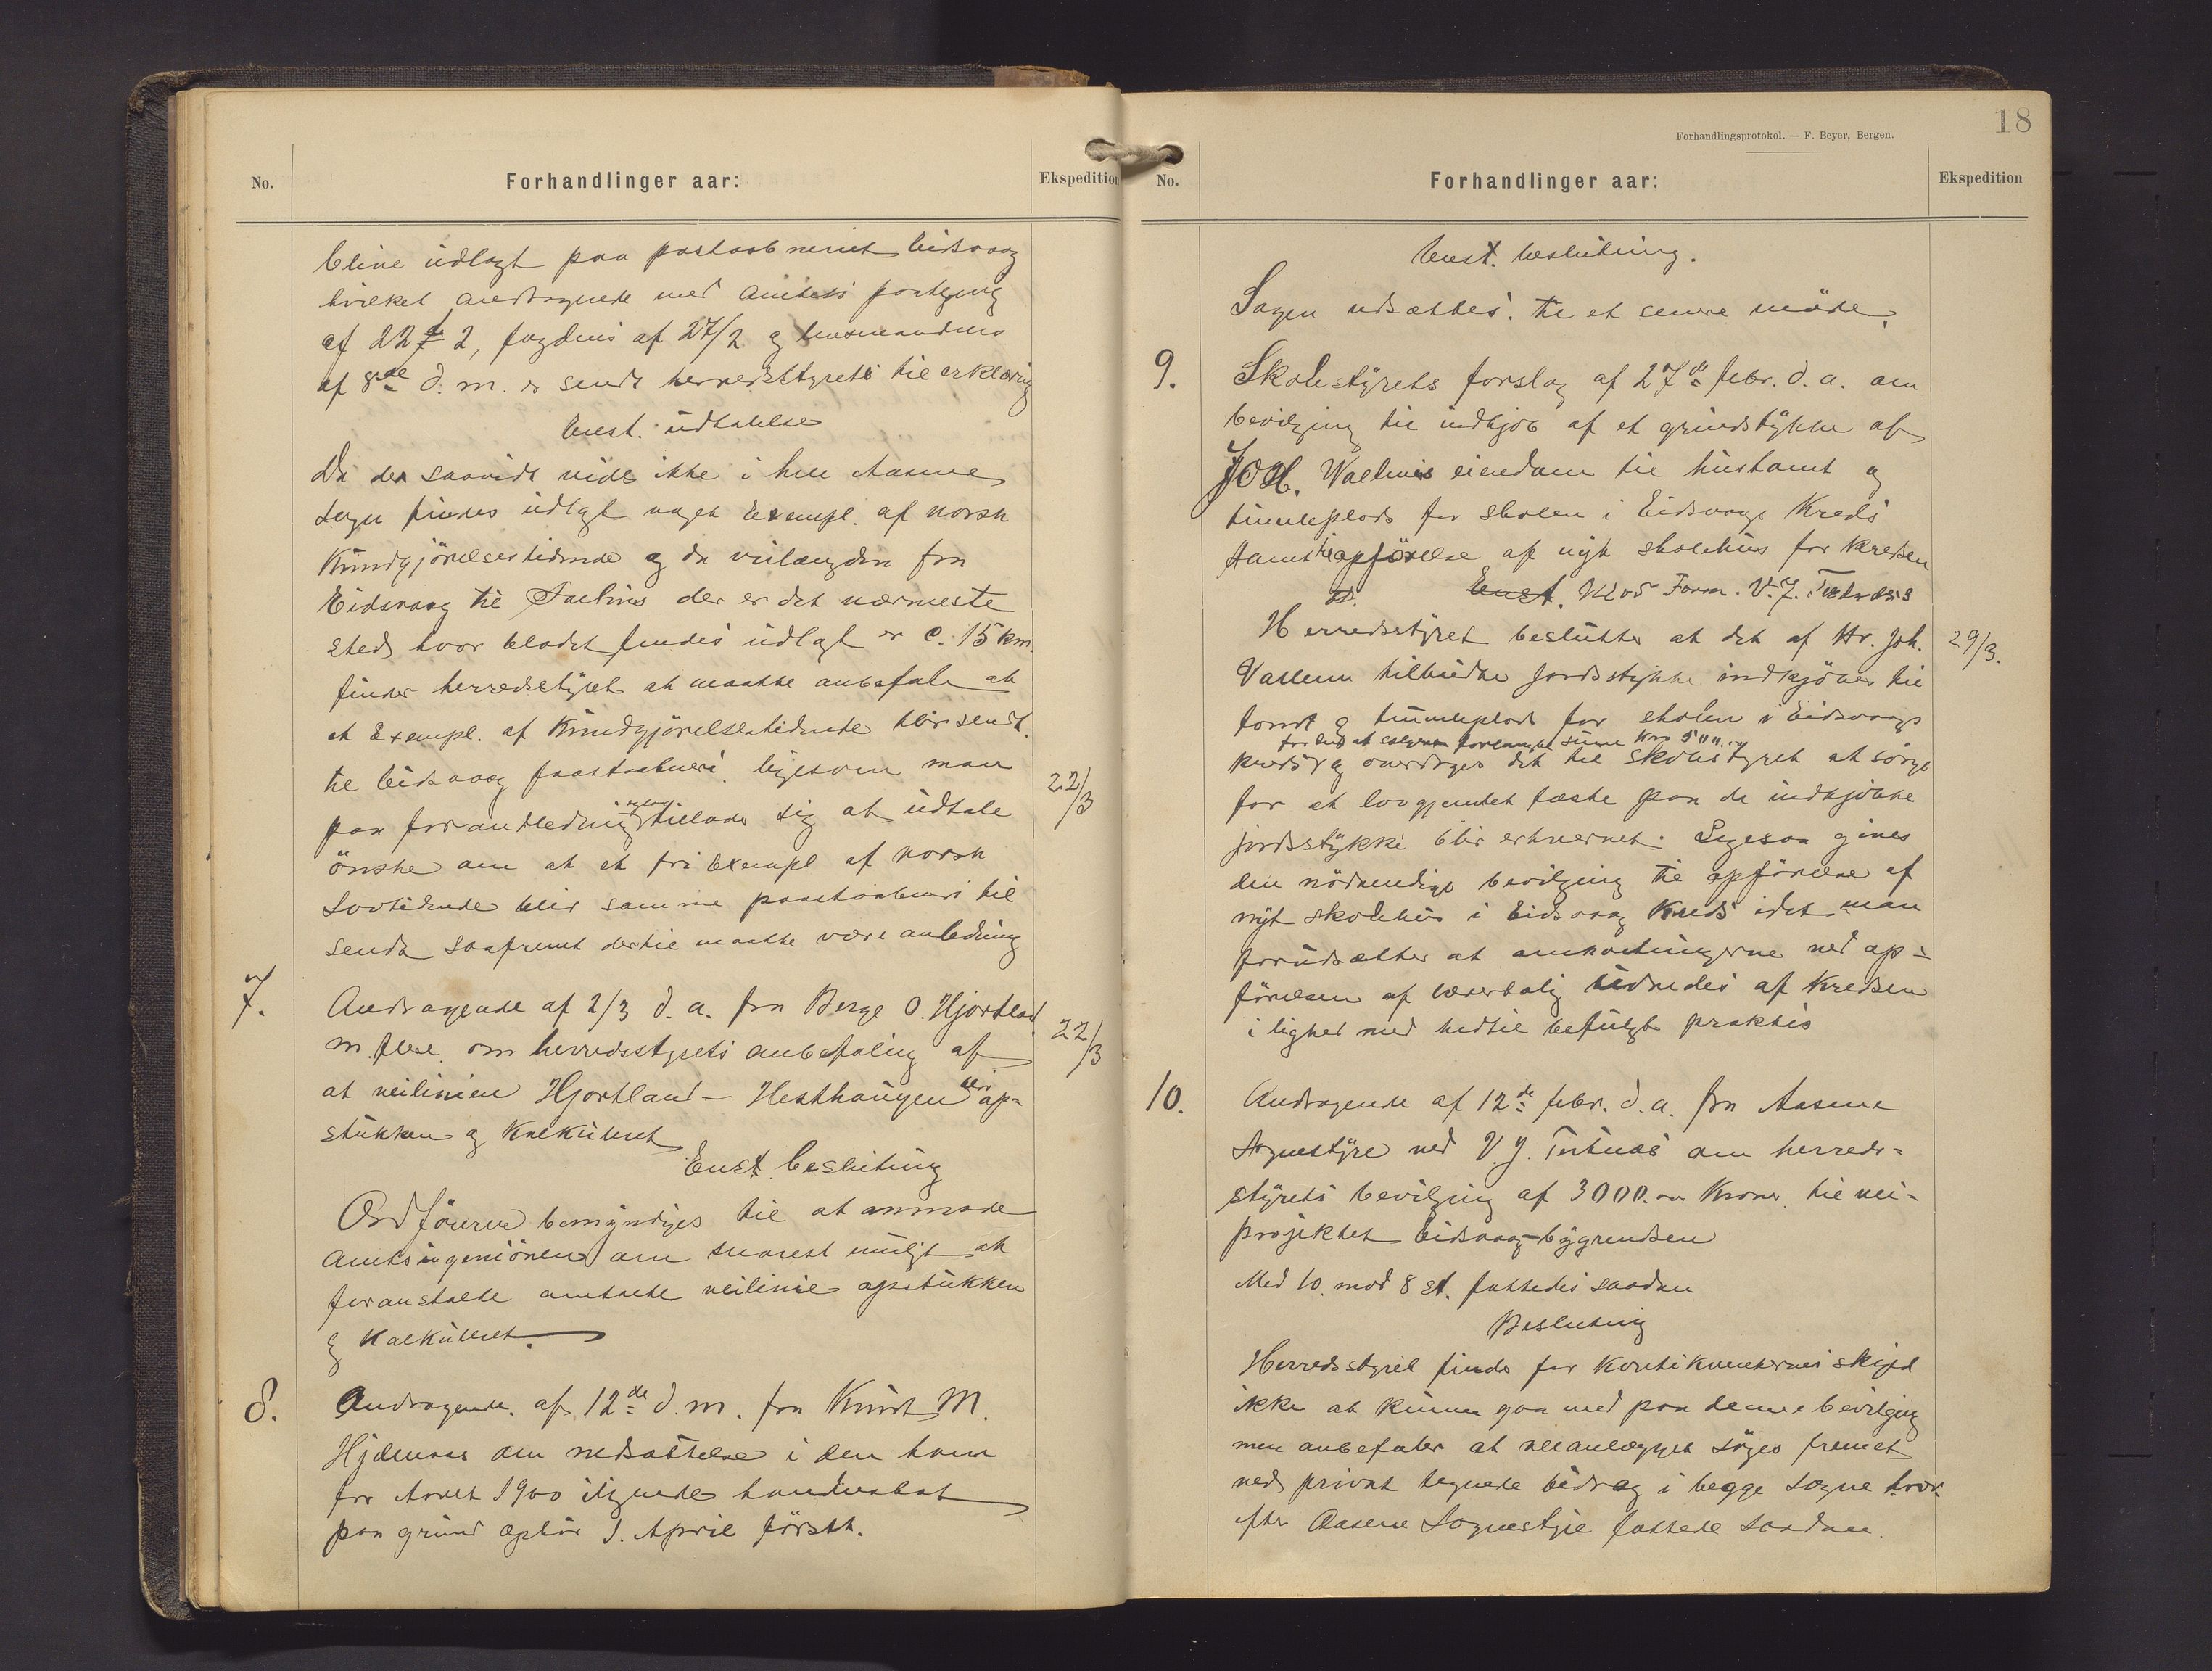 No.
Forhandlinger aar:
Ekspedition
blive udlagt paa postaabneriet Eidsvaag
hvilket andragende med Amtets paategning
af 22/2, fogdens af 27/2 og lensmandens
af 8de d. m. er sendt herredsstyret til erklæring
Enst. udtalelse
Da der saavidt vides ikke i hele Aasene
sogn findes udlagt noget Exempl. af norsk
Kundgjörelsestidende og da veilængden fra
Eidsvaag til Salhus der er det nærmeste
sted hvor bladet findes udlagt er c. 15 km.
finder herredsstyret at maatte anbefale at
et Exempl. af Kundgjörelsestidende blir sendt
til Eidsvaag postaabneri ligesom man
paa foranledning tillader sig at udtale
önske om at et fri Exempl af norsk
Lovtidende blir samme postaabneri til
sendt saafremt dertil maatte være anledning
22/3
7.
Andragende af 2/3 d. a. fra Berge O. Hjortland
m. flere om herredsstyrets anbefaling af
at veilinien Hjortland - Hesthaugen blir op=
stukken og kalkuleret
22/3
Enst. beslutning
Ordföreren bemyndiges til at anmode
Amtsingeniören om snarest muligt at
foranstalte omtalte veilinie opstukken
og kalkuleret.
8.
Andragende af 12de d. m. fra Knut M.
Hjelmaas om nedsættelse i den ham
for Aaret 1900 ilignede handelsskat
paa grund ophör 1. April förstk.
Forhandlingsprotokol. — F. Beyer, Bergen.
18
No.
Forhandlinger aar:
Ekspedition
Enst. beslutning.
Sagen udsættes til et senere möde.
9.
Skolestyrets forslag af 27de febr. d. a. om
bevilgning til indkjöb af et grundstykke af
Joh. Vallevies eiendom til hustomt og
tumleplads for skolen i Eidsvaags Kreds
samt til opförelse af nyt skolehus for kredsen
Enst. mod Form. V. J. Tertnæs
Herredsstyret beslutter at det af Hr. Joh.
29/3.
tilbudte jordstykke indkjöbes til
tomt og tumleplads for skolen i Eidsvaags
for den af sælgeren forlangte sum Kro 500
kreds og overdrages det til skolestyret at sörge
for at lovgjemtet fæste paa de indkjöbte
jordstykke blir erhvervet. Ligesaa gives
den nödvendige bevilgning til opförelse af
nyt skolehus i Eidsvaag Kreds idet man
forudsætter at omkostningerne ved op=
förelsen af lærerbolig udredes af Kredsen
i lighed med hidtil befulgt praktis
10.
Andragende af 12de febr. d. a. fra Aasene
Sognestyre ved V. J. Tertnæs om herreds=
styrets bevilgning af 3000.00 Kroner til vei=
projektet Eidsvaag-bygrendsen
Med 10 mod 8 st. fattedes saadan
Beslutning
Herredsstyret finder for skyld
ikke at kunne gaa med paa denne bevilgning
men anbefaler at veianlægget söges fremet
ved privat tegnede bidrag i begge sogne hvor
efter Aasene Sognestyre fattede saadan